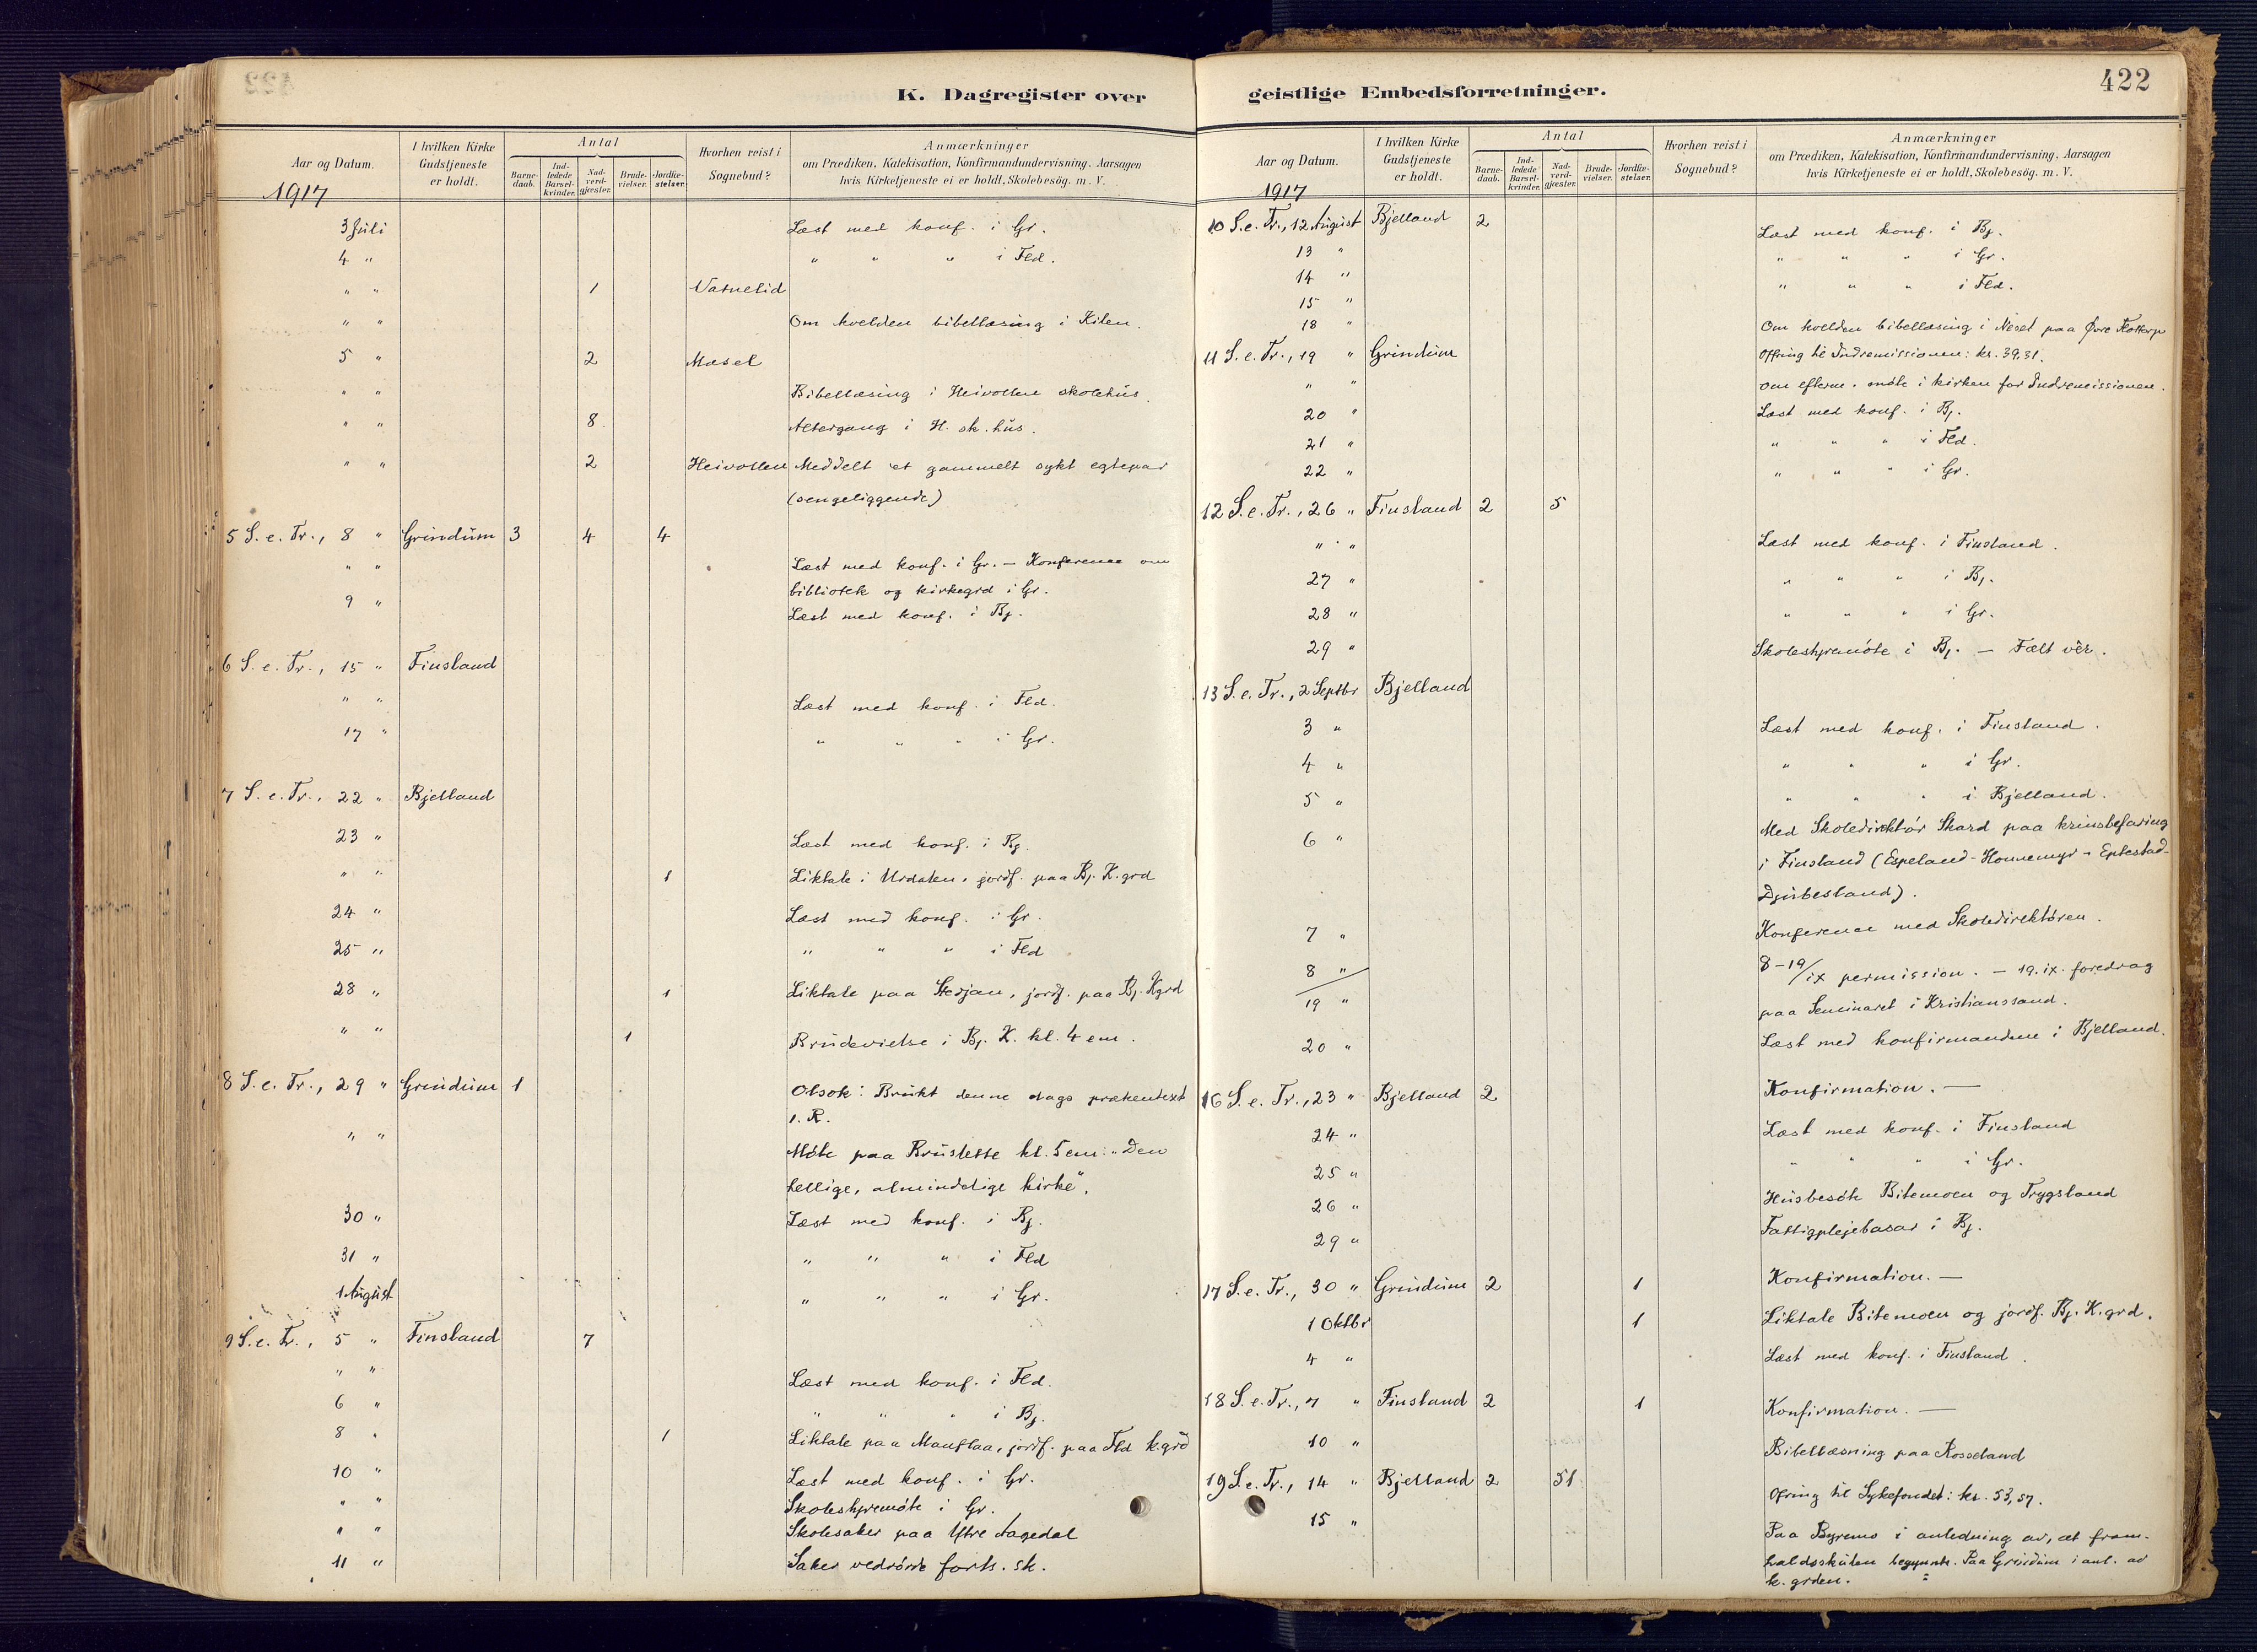 K. Dagregister over
Aar og Datum.
I hvilken Kirke Gudstjeneste er holdt.
Antal
Barnedaab.
Indledede Barselkvinder.
Nadverdgjester.
Brudevielser.
Jordfæstelser.
Hvorhen reist i Sognebud?
Anmærkninger
om Prædiken, Katekisation, Konfirmandundervisning, Aarsagen
hvis Kirketjeneste ei er holdt, Skolebesøg. m. V.
1917
3 Juli Læst med konf. i Gr.
4 " " " " i Fld.
" " 1 Vatnelid
" " Om kvelden bibellæsing i Kilen.
5 " 2 Mæsel
" " Bibellæsing i Heivollen skolehus.
" " 8 Altergang i H. sk. hus.
" " 2 Heivollen Meddelt et gammelt sykt egtepar
(sengeliggende)
5 S. e. Tr., 8 " Grindum 3 4 4
" " Læst med konf. i Gr. – Konferense om
bibliotek og kirkegrd i Gr.
9 " Læst med konf. i Bj.
6 S. e. Tr., 15 " Finsland
" " Læst med konf. i Fld.
17 " " " " i Gr.
7 S. e. Tr., 22 " Bjelland
23 " Læst med konf. i Bj.
" " 1 Liktale i Urdalen, jordf. paa Bj. K.grd
24 " Læst med konf. i Gr.
25 " " " " i Fld
28 " 1 Liktale paa Stedjan, jordf. paa Bj. Kgrd
" " 1 Brudevielse i Bj. K. kl. 4 em.
8 S. e. Tr., 29 " Grindum 1 Olsok: Brukt denne dags præketext
1. R.
" " Møte paa Bruslette kl. 5 em: "Den
hellige, almindelige kirke".
30 " Læst med konf. i Bj.
31 " " " " i Fld
1 August " " " i Gr.
9 S. e. Tr., 5 " Finsland 7
" " Læst med konf. i Fld.
6 " " " " i Bj.
8 " 1 Liktale paa Manflaa, jordf. paa Fld k.grd
10 " Læst med konf. i Gr.
" " Skolestyremøte i Gr.
" " Skolesaker paa Ytre Aagedal
11 " Saker vedrørde forts. sk.
geistlige Embedsforretninger.
422
Aar og Datum.
I hvilken Kirke Gudstjeneste er holdt.
Antal
Barnedaab.
Indledede Barselkvinder.
Nadverdgjester.
Brudevielser.
Jordfæstelser.
Hvorhen reist i Sognebud?
Anmærkninger
om Prædiken, Katekisation, Konfirmandundervisning, Aarsagen
hvis Kirketjeneste ei er holdt, Skolebesøg. m. V.
1917
10 S. e. Tr., 12 August Bjelland 2
13 " Læst med konf. i Bj.
14 " " " " i Gr.
15 " " " " i Fld.
18 " Om kvelden bibellæsing i Neset paa Øvre
11 S. e. Tr., 19 " Grindum Offring til Indremissionen: kr. 39,31.
" " Om efterm. møte i kirken for Indremissionen.
20 " Læst med konf. i Bj.
21 " " " " i Fld.
22 " " " " i Gr.
12 S. e. Tr., 26 " Finsland 2 5
" " Læst med konf. i Finsland.
27 " " " " i Bj.
28 " " " " i Gr.
29 " Skolestyremøte i Bj. – Fælt vêr.
13 S. e. Tr., 2 Septbr Bjelland
3 " Læst med konf. i Finsland.
4 " " " " i Gr.
5 " " " " i Bjelland.
6 " Med Skoledirektør Skard paa krinsbefaring
i Finsland (Espeland - Honnemyr - Eptestad-
Djubesland).
7 " Konferense med Skoledirektøren.
8 " 8–19/ix permission. – 19. ix. foredrag
19 " paa Seminaret i Kristianssand.
20 " Læst med konfirmandene i Bjelland.
16 S. e. Tr., 23 " Bjelland 2 Konfirmation. —
24 " Læst med konf. i Finsland
25 " " " " i Gr.
26 " Husbesøk Bitemoen og Trygsland
29 " Fattigplejebasar i Bj.
17 S. e. Tr., 30 " Grindum 2 1 Konfirmation. —
1 Oktbr 1 Liktale Bitemoen og jordf. Bj. K. grd.
4 " Læst med konf. i Finsland.
18 S. e. Tr., 7 " Finsland 2 1 Konfirmation. —
10 " Bibellæsning paa Rosseland
19 S. e. Tr., 14 " Bjelland 2 51 Ofring til Sykefondet: kr. 53,57.
15 " Paa Byremo i anledning av, at fram-
haldsskulen begynnte. Paa Grindum i anl. av
k. grden.